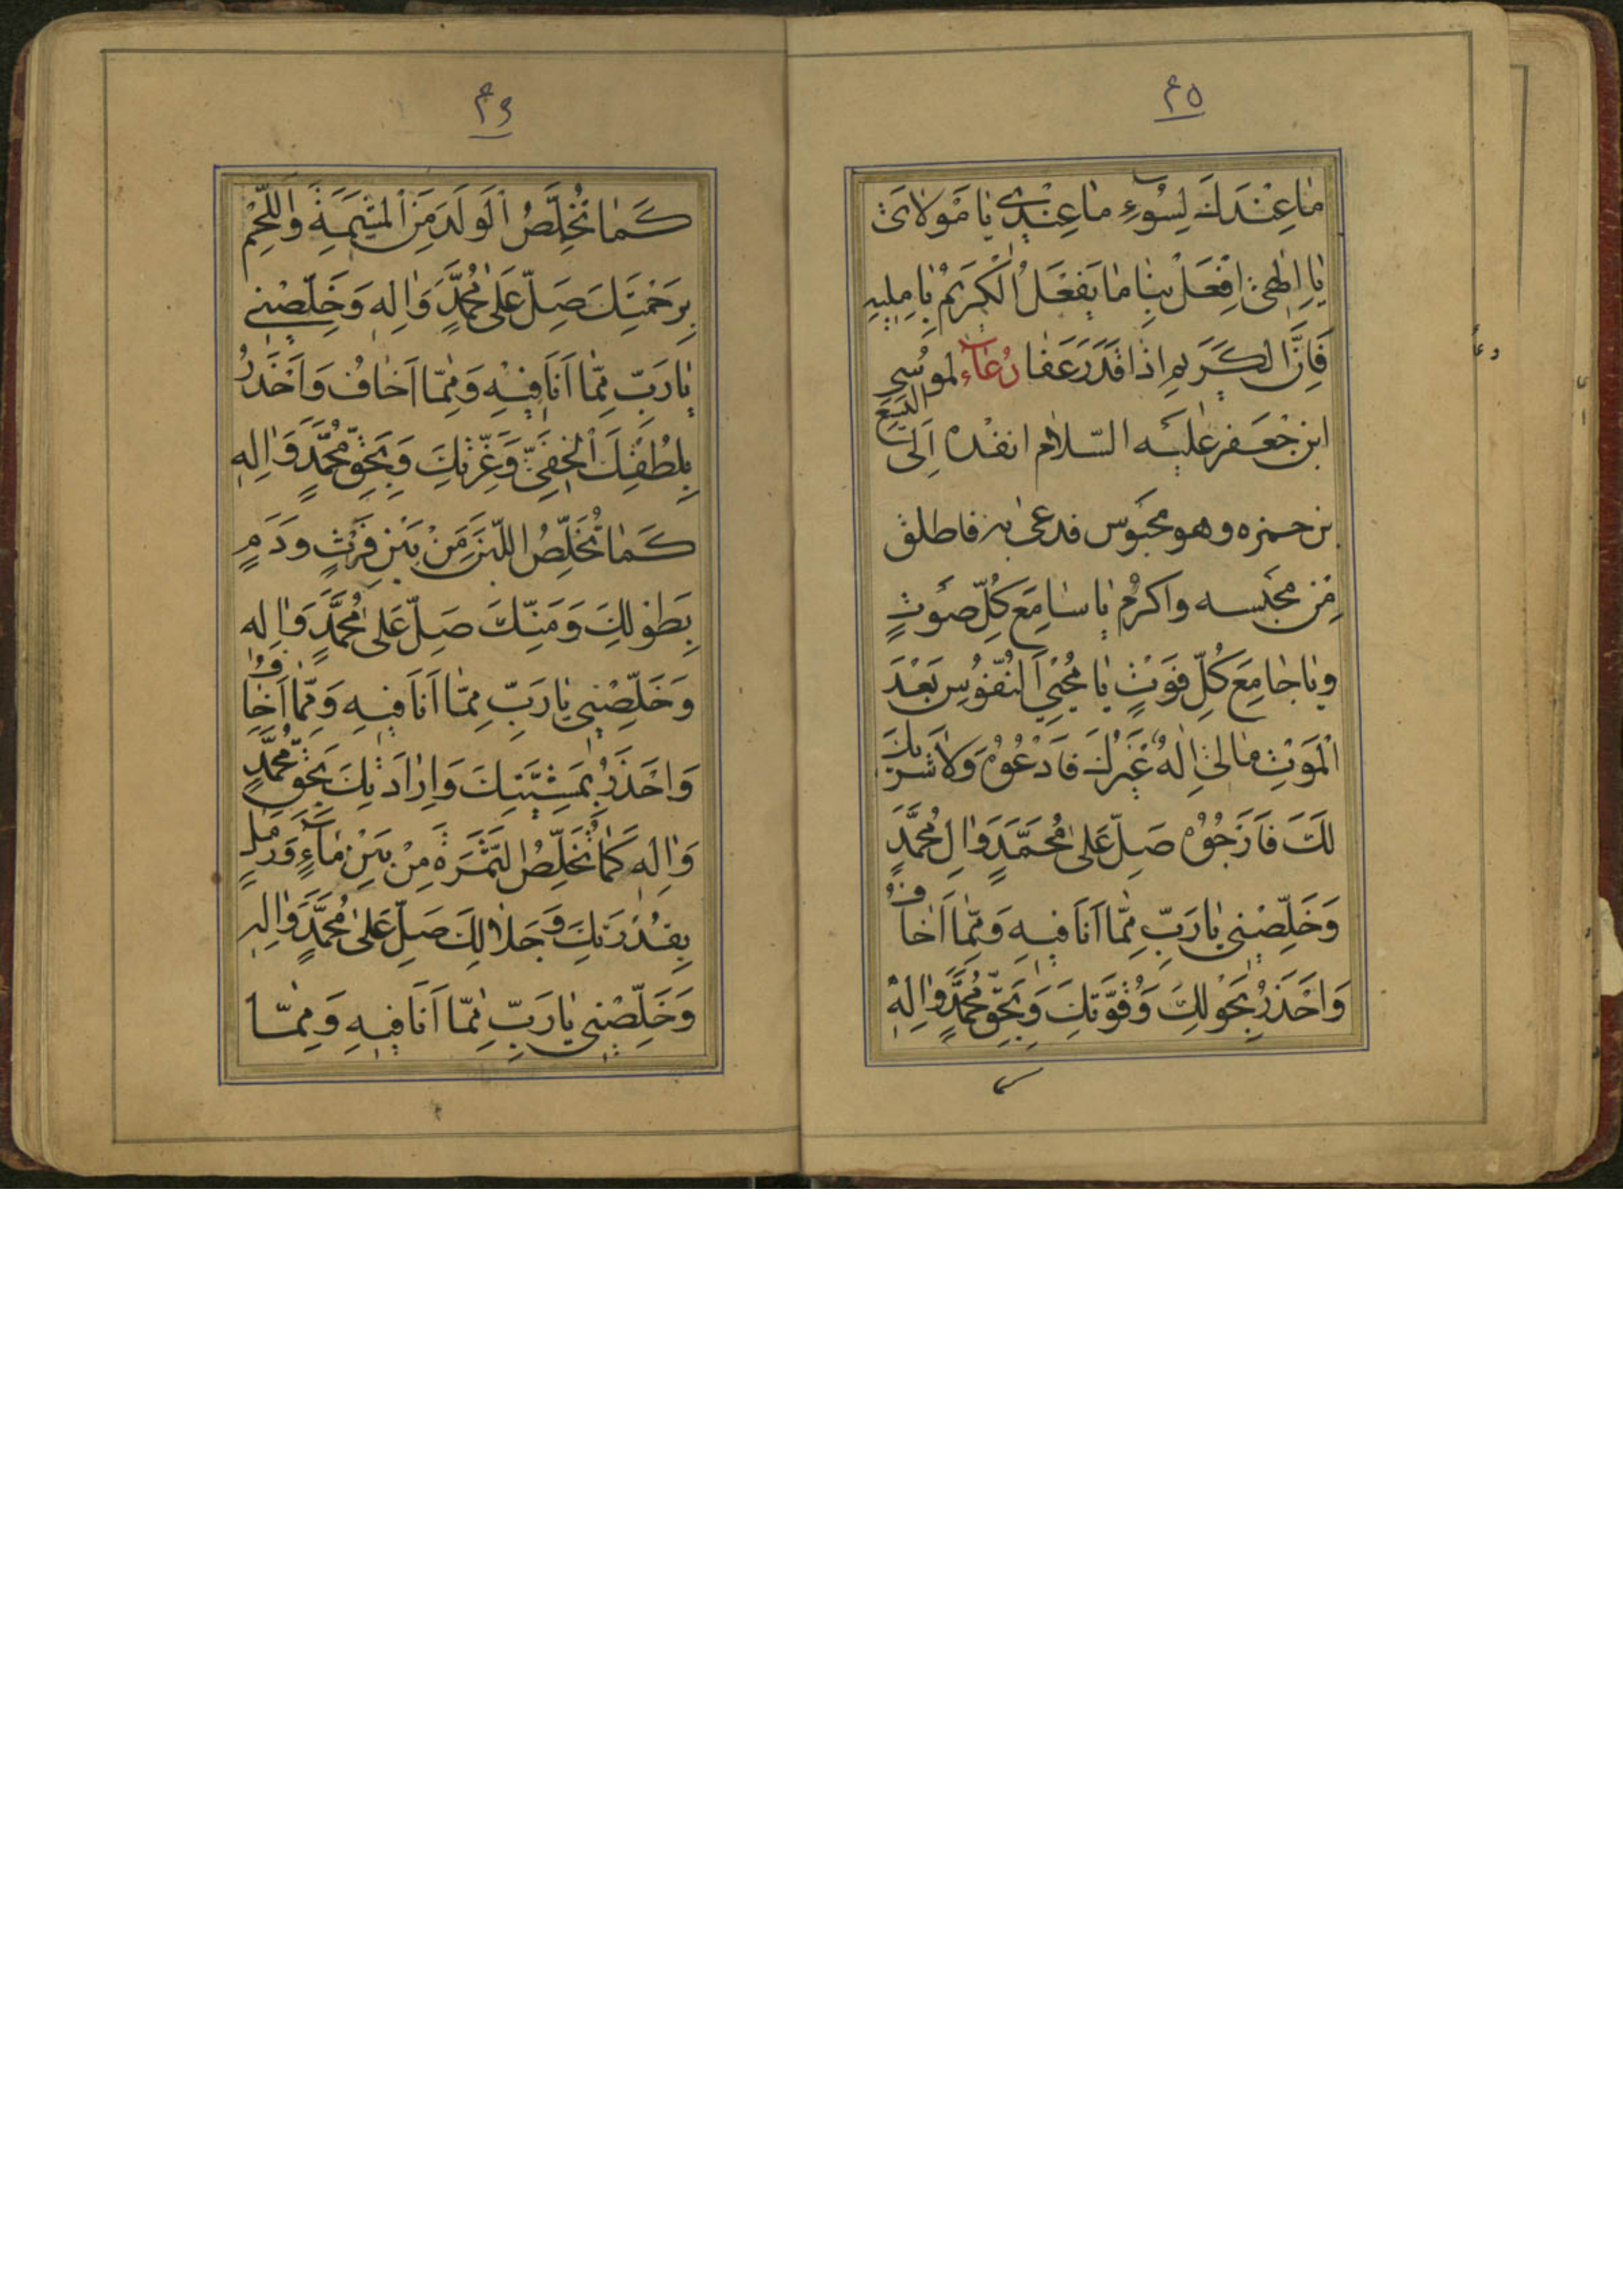 ٤٥
مٰا عِنْدَكَ لِسُوءِ مٰا عِنْدِي يٰا مَوْلاٰىَ
يٰا اِلٰهِى اِفْعَلْ بِنٰا مٰا يَفْعَلُ الْكَرِيمُ
فَاِنَّ الكَريمِ اِذٰا قَدَرَ عَفٰا دُعٰاء لموسى
ابن جعفر عليه السّلام انفذه اِلىٰ اليسع
بن حمزه وهو محبوس فدعى به فاطلق
مِن محبسه واكرم يٰا سٰامِعَ كُلِّ صَوْتٍ
وَيٰا جٰامِعَ كُلِّ فَوْتٍ يٰا مُحْيِيَ النُّفُوسِ بَعْدَ
الْمَوْتِ مٰالى اِلٰهٌ غَيْرُكَ فَاَدْعُوهُ وَلاٰ شَرِيكَ
لَكَ فَاَرْجُوهُ صَلِّ عَلىٰ مُحَمَّدٍ وَاٰلِ مُحَمَّدٍ
وَخَلِّصْنى يٰا رَبِّ مِمّٰا اَنَا فيهِ وَمِمّٰا اَخٰافُ
وَاَحْذَرُ بِحَوْلِكَ وَقُوَّتِكَ وَبِحَقِّ مُحَمَّدٍ وَاٰلِهِ
٤٦
كَمٰا تُخَلِّصُ الْوَلَدَ مِنَ الْمَشيمَةِ وَاللَّحْمِ
بِرَحْمَتِكَ صَلِّ عَلىٰ مُحَمَّدٍ وَاٰلِهِ وَخَلِّصْنى
يٰا رَبِّ مِمّٰا اَنَا فيهِ وَمِمّٰا اَخٰافُ وَاَحْذَرُ
بِلُطْفِكَ الْخَفِىِّ وَعِزَّتِكَ وَبِحَقِّ مُحَمَّدٍ وَاٰلِهِ
كَمٰا تُخَلِّصُ اللَّبَنَ مِنْ بَيْنِ فَرْثٍ وَدَمٍ
بِطَوْلِكَ وَمَنِّكَ صَلِّ عَلىٰ مُحَمَّدٍ وَاٰلِهِ
وَخَلِّصْنى يٰا رَبِّ مِمّٰا اَنَا فيهِ وَمِمّٰا اَخٰافُ
وَاَحْذَرُ بِمَشِيَّتِكَ وَاِرٰادَتِكَ بِحَقِّ مُحَمَّدٍ
وَاٰلِهِ كَمٰا تُخَلِّصُ الثَّمَرَةَ مِنْ بَيْنِ مٰاءٍ وَرَمْلٍ
بِقُدْرَتِكَ وَجَلاٰلِكَ صَلِّ عَلىٰ مُحَمَّدٍ وَاٰلِهِ
وَخَلِّصْنى يٰا رَبِّ مِمّٰا اَنَا فيهِ وَمِمّٰا